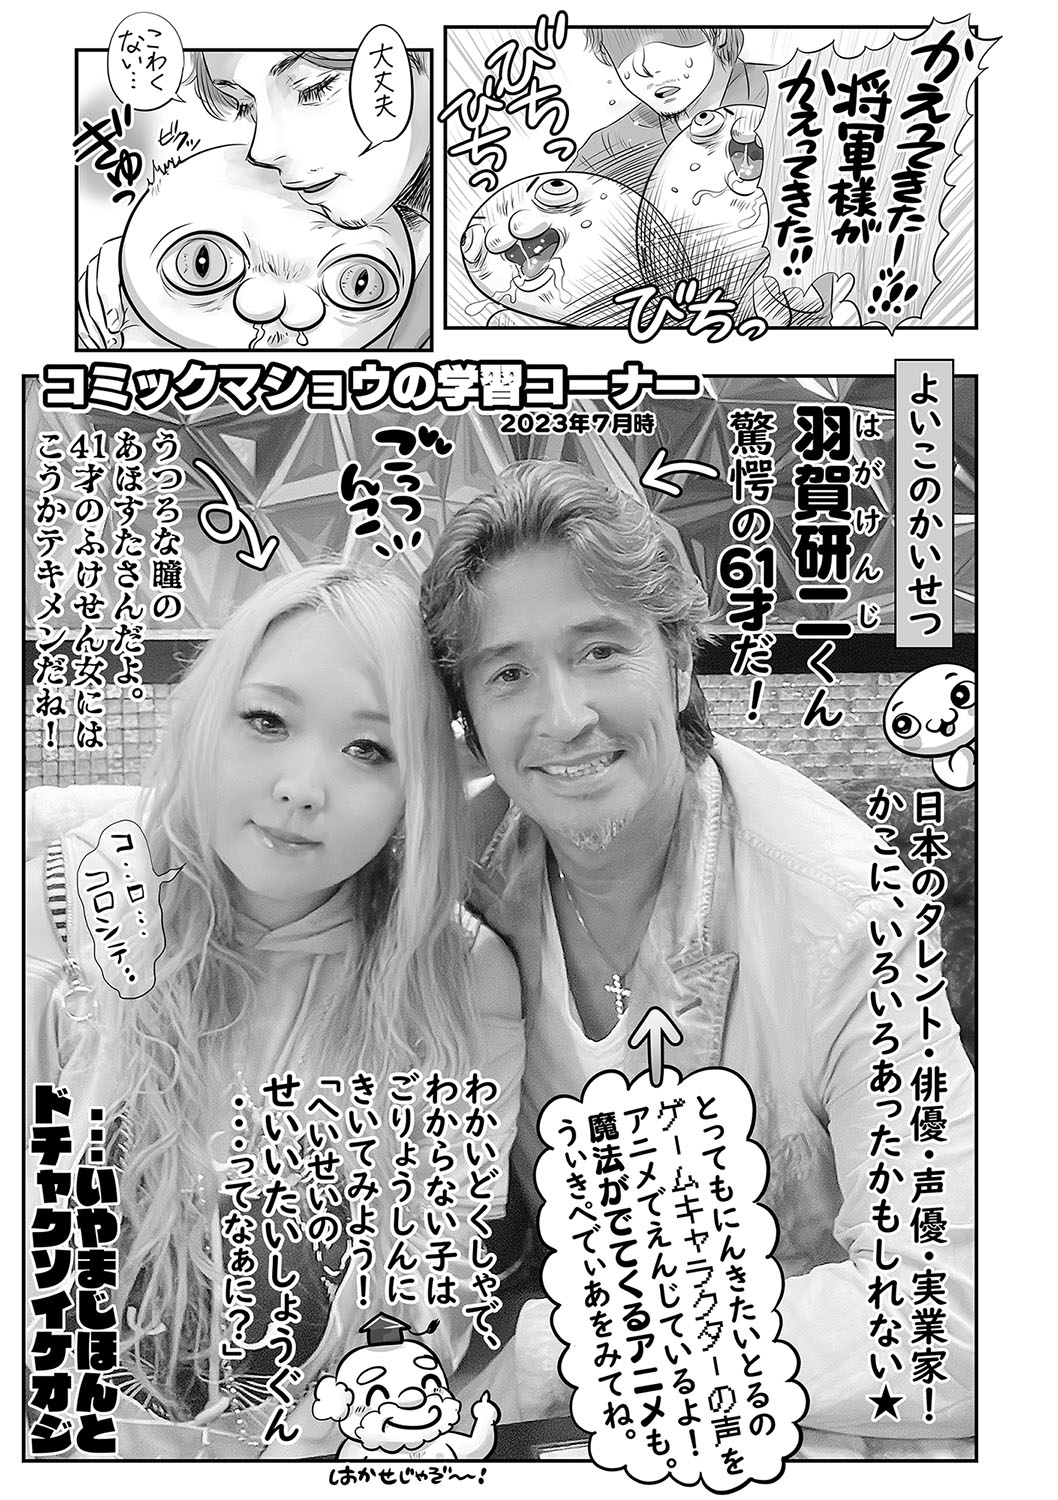 かえってきたー!!!!
将軍様が
かえってきた!!
びちっ
びちっ
びちっ
大丈夫
こわく
ない…
ぎゅっ
コミックマショウの学習コーナー
2023年7月時
よいこのかいせつ
はがけんじ
羽賀研二くん
驚愕の61才だ!
日本のタレント・俳優・声優・実業家!
かこに、いろいろあったかもしれない★
ごっつ
んこ
うつろな瞳の
あほすたさんだよ。
41才のふけせん女には
こうかテキメンだね!
コ..ロ...
コロシテ..
とってもにんきたいとるの
ゲームキャラクターの声を
アニメでえんじているよ!
魔法がでてくるアニメも。
うぃきぺでぃあをみてね。
わかいどくしゃで、
わからない子は
ごりょうしんに
きいてみよう!
「へいせいの
せいいたいしょうぐん
・・・ってなぁに?」
…いやまじほんと
ドチャクソイケオジ
はかせじゃぞ〜!